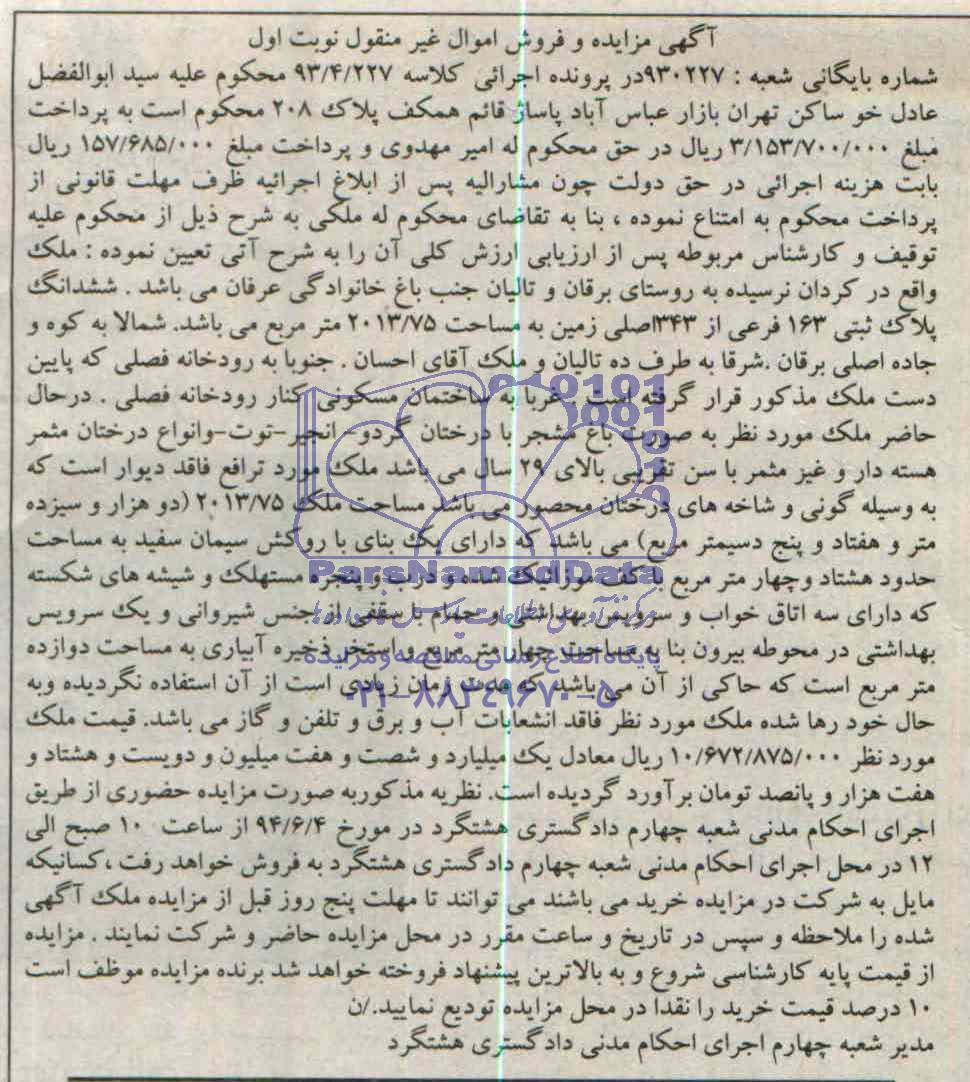 آگهی مزایده و فروش اموال غیر منقول نوبت اول
شماره بایگانی شعبه : ۹۳۰۲۲۷در پرونده اجرائی کلاسه ۹۳/۴/۲۲۷ محکوم علیه سید ابوالفضل
عادل خو ساکن تهران بازار عباس آباد پاساژ قائم همکف پلاک ۲۰۸ محکوم است به پرداخت
مبلغ ۳/۱۵۳/۷۰۰/۰۰۰ ریال در حق محکوم له امیر مهدوی و پرداخت مبلغ ۱۵۷/۶۸۵/۰۰۰ ریال
بابت هزینه اجرائی در حق دولت چون مشارالیه پس از ابلاغ اجرائیه ظرف مهلت قانونی از
پرداخت محکوم به امتناع نموده ، بنا به تقاضای محکوم له ملکی به شرح ذیل از محکوم علیه
توقیف و کارشناس مربوطه پس از ارزیابی ارزش کلی آن را به شرح آتی تعیین نموده : ملک
واقع در کردان نرسیده به روستای برقان و تالیان جنب باغ خانوادگی عرفان می باشد . ششدانگ
پلاک ثبتی ۱۶۳ فرعی از ۳۴۳اصلی زمین به مساحت ۲۰۱۳/۷۵ متر مربع می باشد. شمالا به کوه و
جاده اصلی برقان .شرقا به طرف ده تالیان و ملک آقای احسان . جنوبا به رودخانه فصلی که پایین
دست ملک مذکور قرار گرفته است . غربا به ساختمان مسکونی کنار رودخانه فصلی . درحال
حاضر ملک مورد نظر به صورت باغ مشجر با درختان گردو-انجیر-توت-وانواع درختان مثمر
هسته دار و غیز مثمر با سن تقریبی بالای ۲۹ سال می باشد ملک مورد ترافع فاقد دیوار است که
به وسیله گونی و شاخه های درختان محصور می باشد مساحت ملک ۲۰۱۳/۷۵ (دو هزار و سیزده
متر و هفتاد و پنج دسیمتر مربع) می باشد که دارای یک بنای با روکش سیمان سفید به مساحت
حدود هشتاد وچهار متر مربع با کف موزائیک شده و درب و پنجره مستهلک و شیشه های شکسته
که دارای سه اتاق خواب و سرویس بهداشتی و حمام با سقفی از جنس شیروانی و یک سرویس
بهداشتی در محوطه بیرون بنا به مساحت چهار متر مربع و استخر ذخیره آبیاری به مساحت دوازده
متر مربع است که حاکی از آن می باشد که مدت زمان زیادی است از آن استفاده نگردیده وبه
حال خود رها شده ملک مورد نظر فاقد انشعابات آب و برق و تلفن و گاز می باشد. قیمت ملک
مورد نظر ۱۰/۶۷۲/۸۷۵/۰۰۰ ریال معادل یک میلیارد و شصت و هفت میلیون و دویست و هشتاد و
هفت هزار و پانصد تومان برآورد گردیده است. نظریه مذکوربه صورت مزایده حضوری از طریق
اجرای احکام مدنی شعبه چهارم دادگستری هشتگرد در مورخ ۹۴/۶/۴ از ساعت ۱۰ صبح الی
۱۲ در محل اجرای احکام مدنی شعبه چهارم دادگستری هشتگرد به فروش خواهد رفت ،کسانیکه
مایل به شرکت در مزایده خرید می باشند می توانند تا مهلت پنج روز قبل از مزایده ملک آگهی
شده را ملاحظه و سپس در تاریخ و ساعت مقرر در محل مزایده حاضر و شرکت نمایند . مزایده
از قیمت پایه کارشناسی شروع و به بالاترین پیشنهاد فروخته خواهد شد برنده مزایده موظف است
۱۰ درصد قیمت خرید را نقدا در محل مزایده تودیع نمایید./ن
مدیر شعبه چهارم اجرای احکام مدنی دادگستری هشتگرد
ParsNamadData
پایگاه اطلاع رسانی مناقصه و مزایده
۰۲۱-۸۸۳۴۹۶۷۰-۵